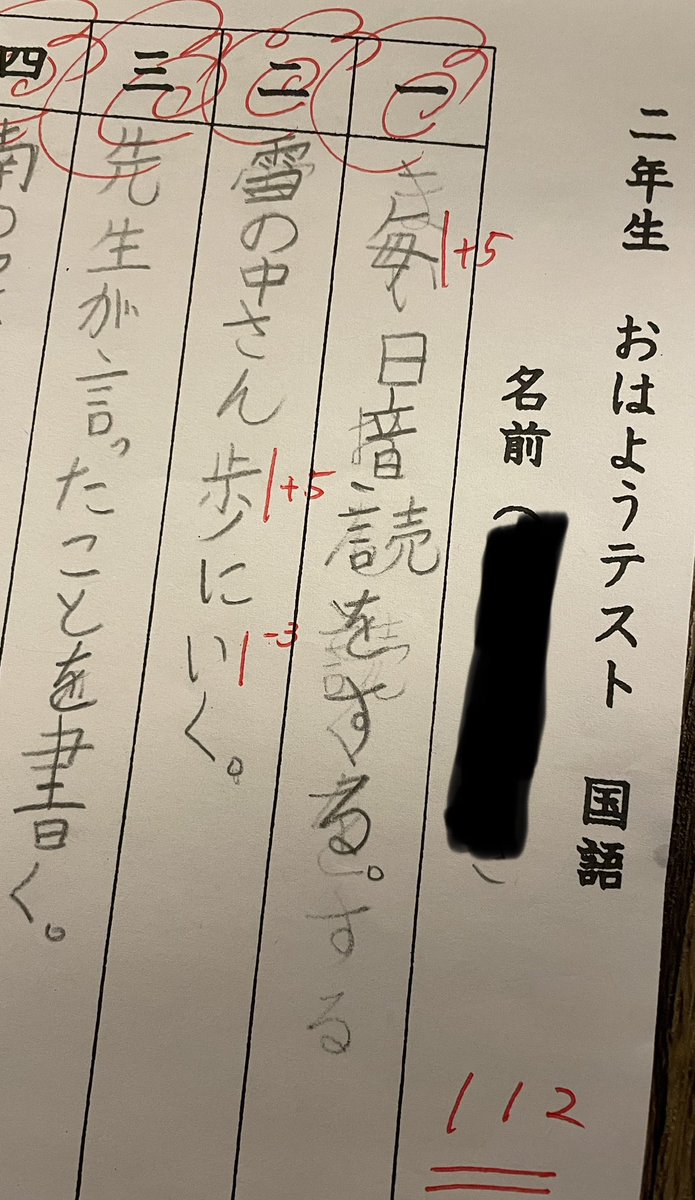 二年生 おはようテスト 国語
名前(
一 毎日音読をする。
+5
二 雪の中さん歩にいく。
+5
-3
三 先生が言ったことを書く。
四
112